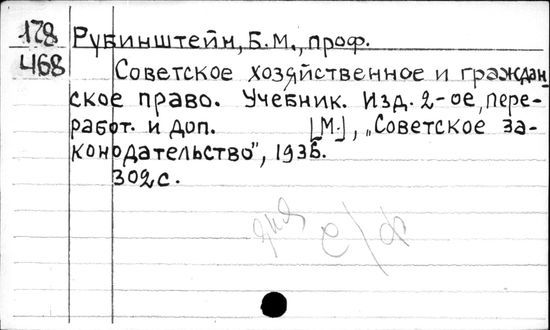 178 Рубинштейн, Б.М., проф.
468 Советское хозяйственное и граждан
ское право. Учебник. Изд. 2-ое, пере-
работ. и доп. [М.], „Советское за-
конодательство", 1936.
302 с.